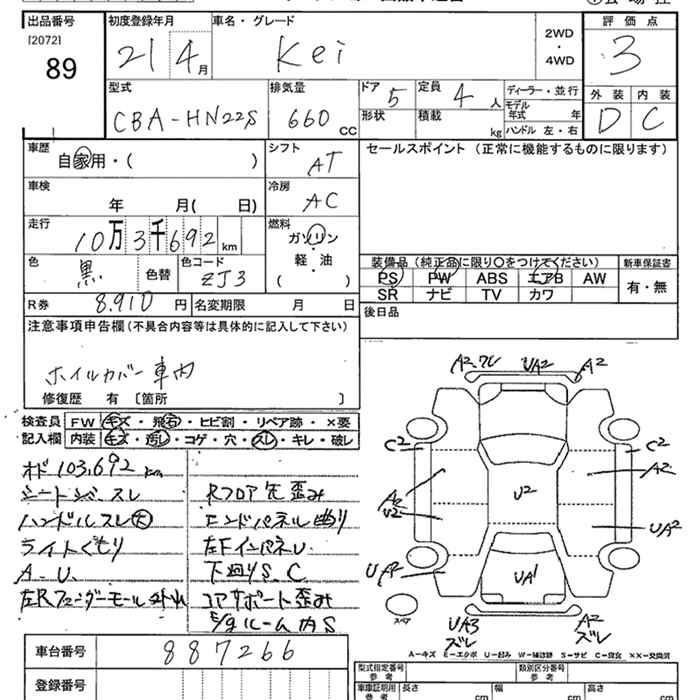 出品番号
[2072]
89
初度登録年月
21 4月
車名・グレード
Kei
2WD
・
4WD
評価点
3
型式
CBA-HN22S
排気量
660 CC
ドア
5
形状
定員
4 人
積載
kg
ディーラー・並行
モデル年式 年
ハンドル 左・右
外装 内装
D C
車歴
自家用・( )
シフト
AT
セールスポイント (正常に機能するものに限ります)
車検
年 月( 日)
冷房
AC
走行
10万3千692km
燃料
ガソリン
軽・油
( )
色
黒
色替
色コード
ZJ3
装備品(純正品に限り○をつけてください)
新車保証書
PS PW ABS エアB AW
有・無
SR ナビ TV カワ
R券
8,910円
名変期限 月 日
後日品
注意事項申告欄(不具合内容等は具体的に記入して下さい)
ホイルカバー車内
修復歴 有 〔箇所 〕
検査員 FW キズ・飛石・ヒビ割・リペア跡・×要
記入欄 内装 キズ・汚レ・コゲ・穴・スレ・キレ・破レ
オド103,692km
シートシミ・スレ
ハンドルスレ大
ライトくもり
A.U.
左Rフェンダーモール外れ
Rフロア先歪み
エンドパネル曲り
左FインパネU.
下廻りS.C
コアサポート歪み
E/gルーム内S
A2.ワレ UA2 A2
C2 C2
A2
U2
U2
A2
UA2
UA2
UA1
スペア
UA3
ズレ
A2
ズレ
A-キズ E-エクボ U-凹み W-補修跡 S-サビ C-腐食 ××-交換済
車台番号
887266
登録番号
型式指定番号
参考
類別区分番号
参考
車庫証明用
参考
長さ cm
幅 cm
高さ cm